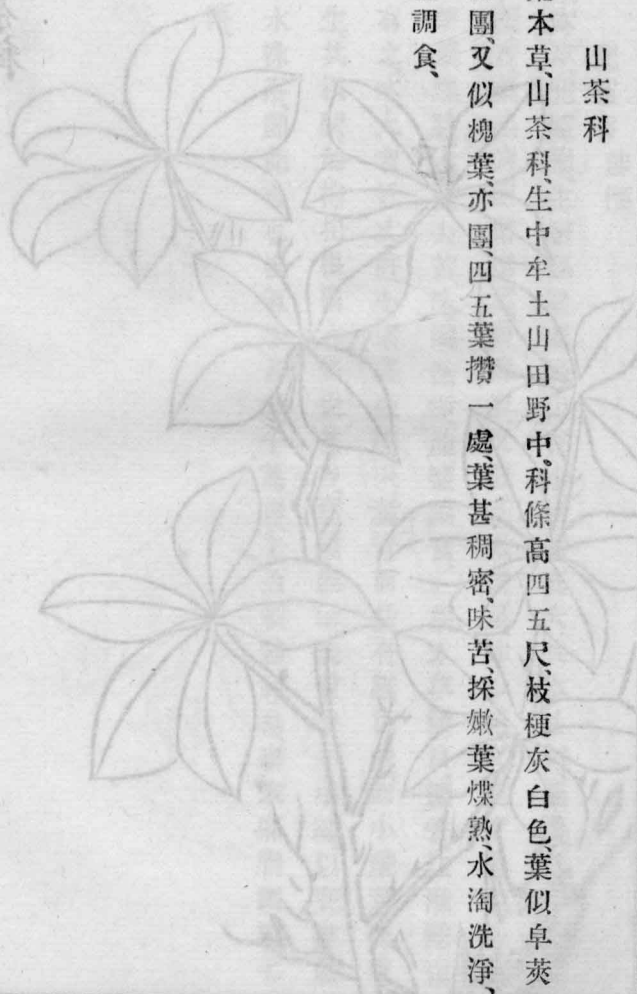 山茶科
本草、山茶科、生中牟土山田野中、科條高四五尺、枝梗灰白色、葉似皁莢
團、又似槐葉、亦團、四五葉攢一處、葉甚稠密、味苦、採嫩葉煠熟、水淘洗淨、
調食、